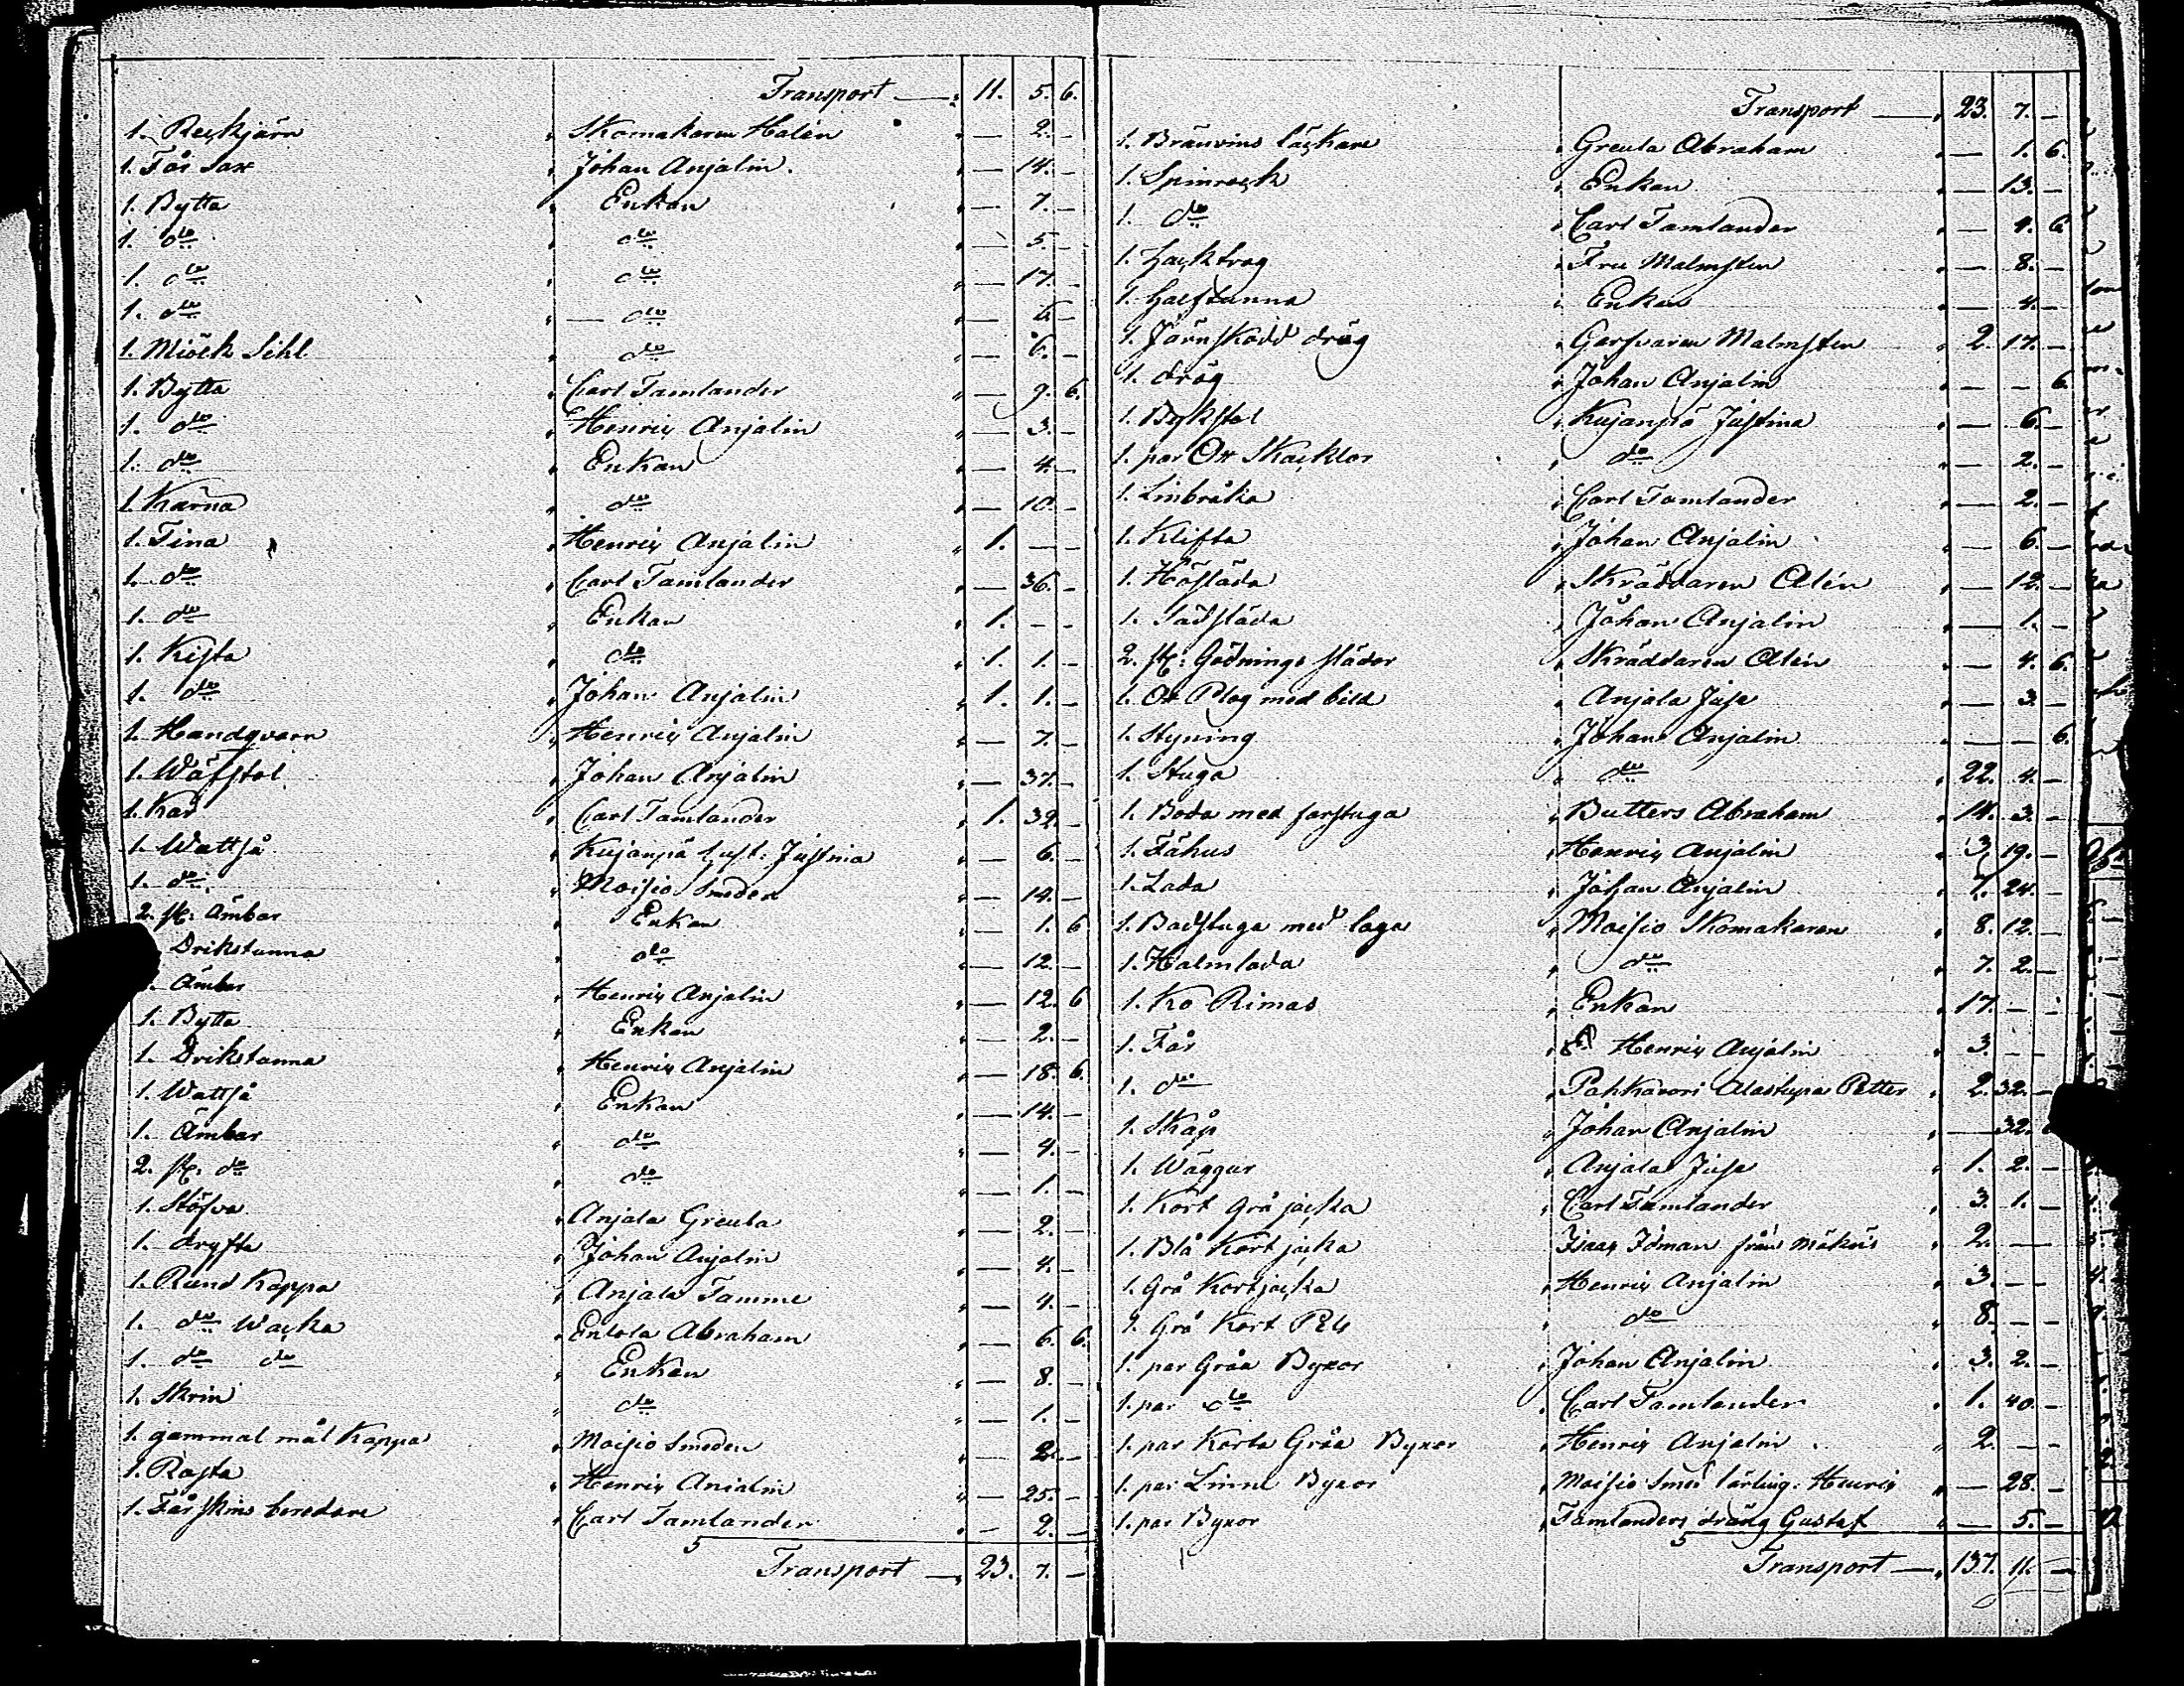 Transport — 11. 5. 6.
1. Reckjärn Skomakaren Halén — 2. —
1. Får Sax Johan Anjalin. — 14. —
1. Bytta Enkan — 7. —
1. do do — 5. —
1. do do — 17. —
1. do — do — 6. —
1. Miölk Sihl do — 6. —
1. Bytta Carl Tamlander — 9. 6.
1. do Henric Anjalin — 3. —
1. do Enkan — 4. —
1. Kärna do — 10. —
1. Tina Henric Anjalin 1. — —
1. do Carl Tamlander — 36. —
1. do Enkan 1. — —
1. Kista do 1. 1. —
1. do Johan Anjalin 1. 1. —
1. Handqvarn Henric Anjalin — 7. —
1. Wäfstol Johan Anjalin — 37. —
1. Kar Carl Tamlander 1. 32. —
1. Wattså Kujanpä Justina — 6. —
1. do Moisio Smeden — 14. —
2. st: Ämbar Enkan — 1. 6
Drikstunna do — 12. —
Ämbar Henric Anjalin — 12. 6
1. Bytta Enkan — 2. —
1. Drikstunna Henric Anjalin — 18. 6.
1. Wattså Enkan — 14. —
1. Ämbar do — 4. —
2. st. do do — 1. —
1. Stöfva Anjala Greula — 2. —
1. dryfte Johan Anjalin — 4. —
1. Rund Kappa Anjala Tamme — 4. —
1. do Wacka Entola Abraham — 6. 6.
1. do do Enkan — 8. —
1. Skrin do — 1. —
1. gammal mål Kappa Moisio Smeden — 2. —
1. Rasta Henric Anialin — 25. —
1. Fårskins beredare Carl Tamlander — 2. —
Transport — 23. 7. —
Transport — 23. 7. —
1. Bränvins läckare Greula Abraham — 1. 6.
1. Spinrock Enkan — 13. —
1. do Carl Tamlander — 4. 6
1. Hacktrog Fru Malmsten — 8. —
1. Halftunna Enkan — 4. —
1. Järnskodd dräg Garfvaren Malmsten 2. 17. —
1. dräg Johan Anjalin — — 6.
1. Bykstol Kujanpä Justina — 6. —
1. par Ox Skacklor do — 2. —
1. Linbråka Carl Tamlander — 2. —
1. Klifta Johan Anjalin — 6. —
1. Hösläda Skräddaren Alén — 12. —
1. Sädsläda Johan Anjalin — 1. —
2. st: Gödnings slädor Skräddaren Alén — 4. 6.
1. Ox Plog med bild Anjala Jusa — 3. —
1. Styning Johan Anjalin — — 6.
1. Stuga do 22. 4. —
1. Boda med farstuga Butters Abraham 14. 3. —
1. Fähus Henric Anjalin 3. 19. —
1. Lada Johan Anjalin 7. 24. —
1. Badstuga med laga Moisio Skomakaren 8. 12. —
1. Halmlada do 7. 2. —
1. Ko Rimas Enkan 17. — —
1. Får Henric Anjalin 3. — —
1. do Pahkavori Alastupa Petter 2. 32. —
1. Skåp Johan Anjalin — 32.
1. Wäggur Anjala Jusa 1. 2. —
1. Kort Grå jacka Carl Tamlander 3. 1. —
1. Blå Kort jacka Isaac Idman från 2. — —
1. Grå Kort jacka Henric Anjalin 3. — —
1. Grå Kort Pels do 8. — —
1. par Gråa Byxor Johan Anjalin 3. 2. —
1. par do Carl Tamlander 1. 40. —
1. par Korta Gråa Byxor Henric Anjalin 2. — —
1. par Linne Byxor Moisio Smes lärling: Henric — 28. —
1. par Byxor Tamlanders dräng Gustaf — 5. —
Transport — 137. 11. —